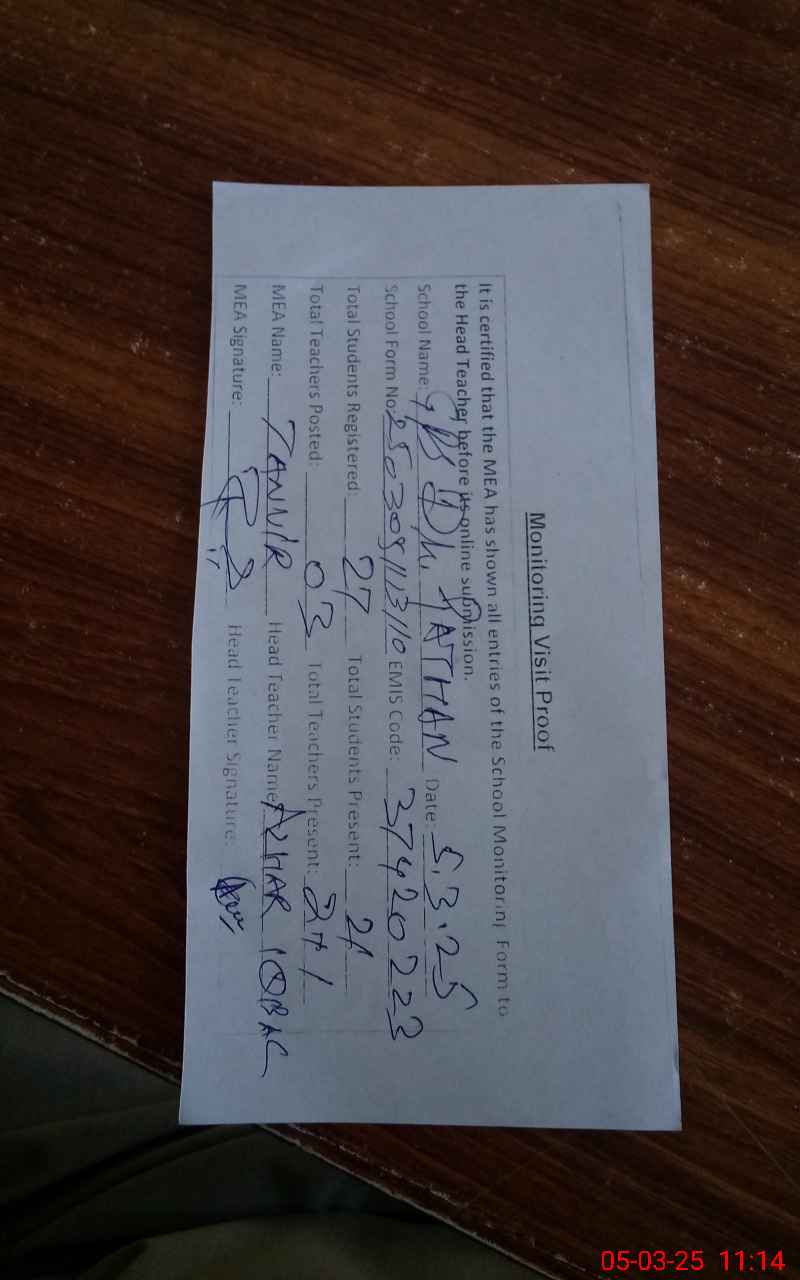 Monitoring Visit Proof
It is certified that the MEA has shown all entries of the School Monitoring Form to
the Head Teacher before its online submission.
School Name: GPS Dh. PATHAN Date: 5.3.25
School Form No: EMIS Code: 37420223
Total Students Registered: 27 Total Students Present: 21
Total Teachers Posted: 03 Total Teachers Present: 2+1
MEA Name: TANVIR Head Teacher Name: AZHAR IQBAL
MEA Signature: Head Teacher Signature:
05-03-25 11:14